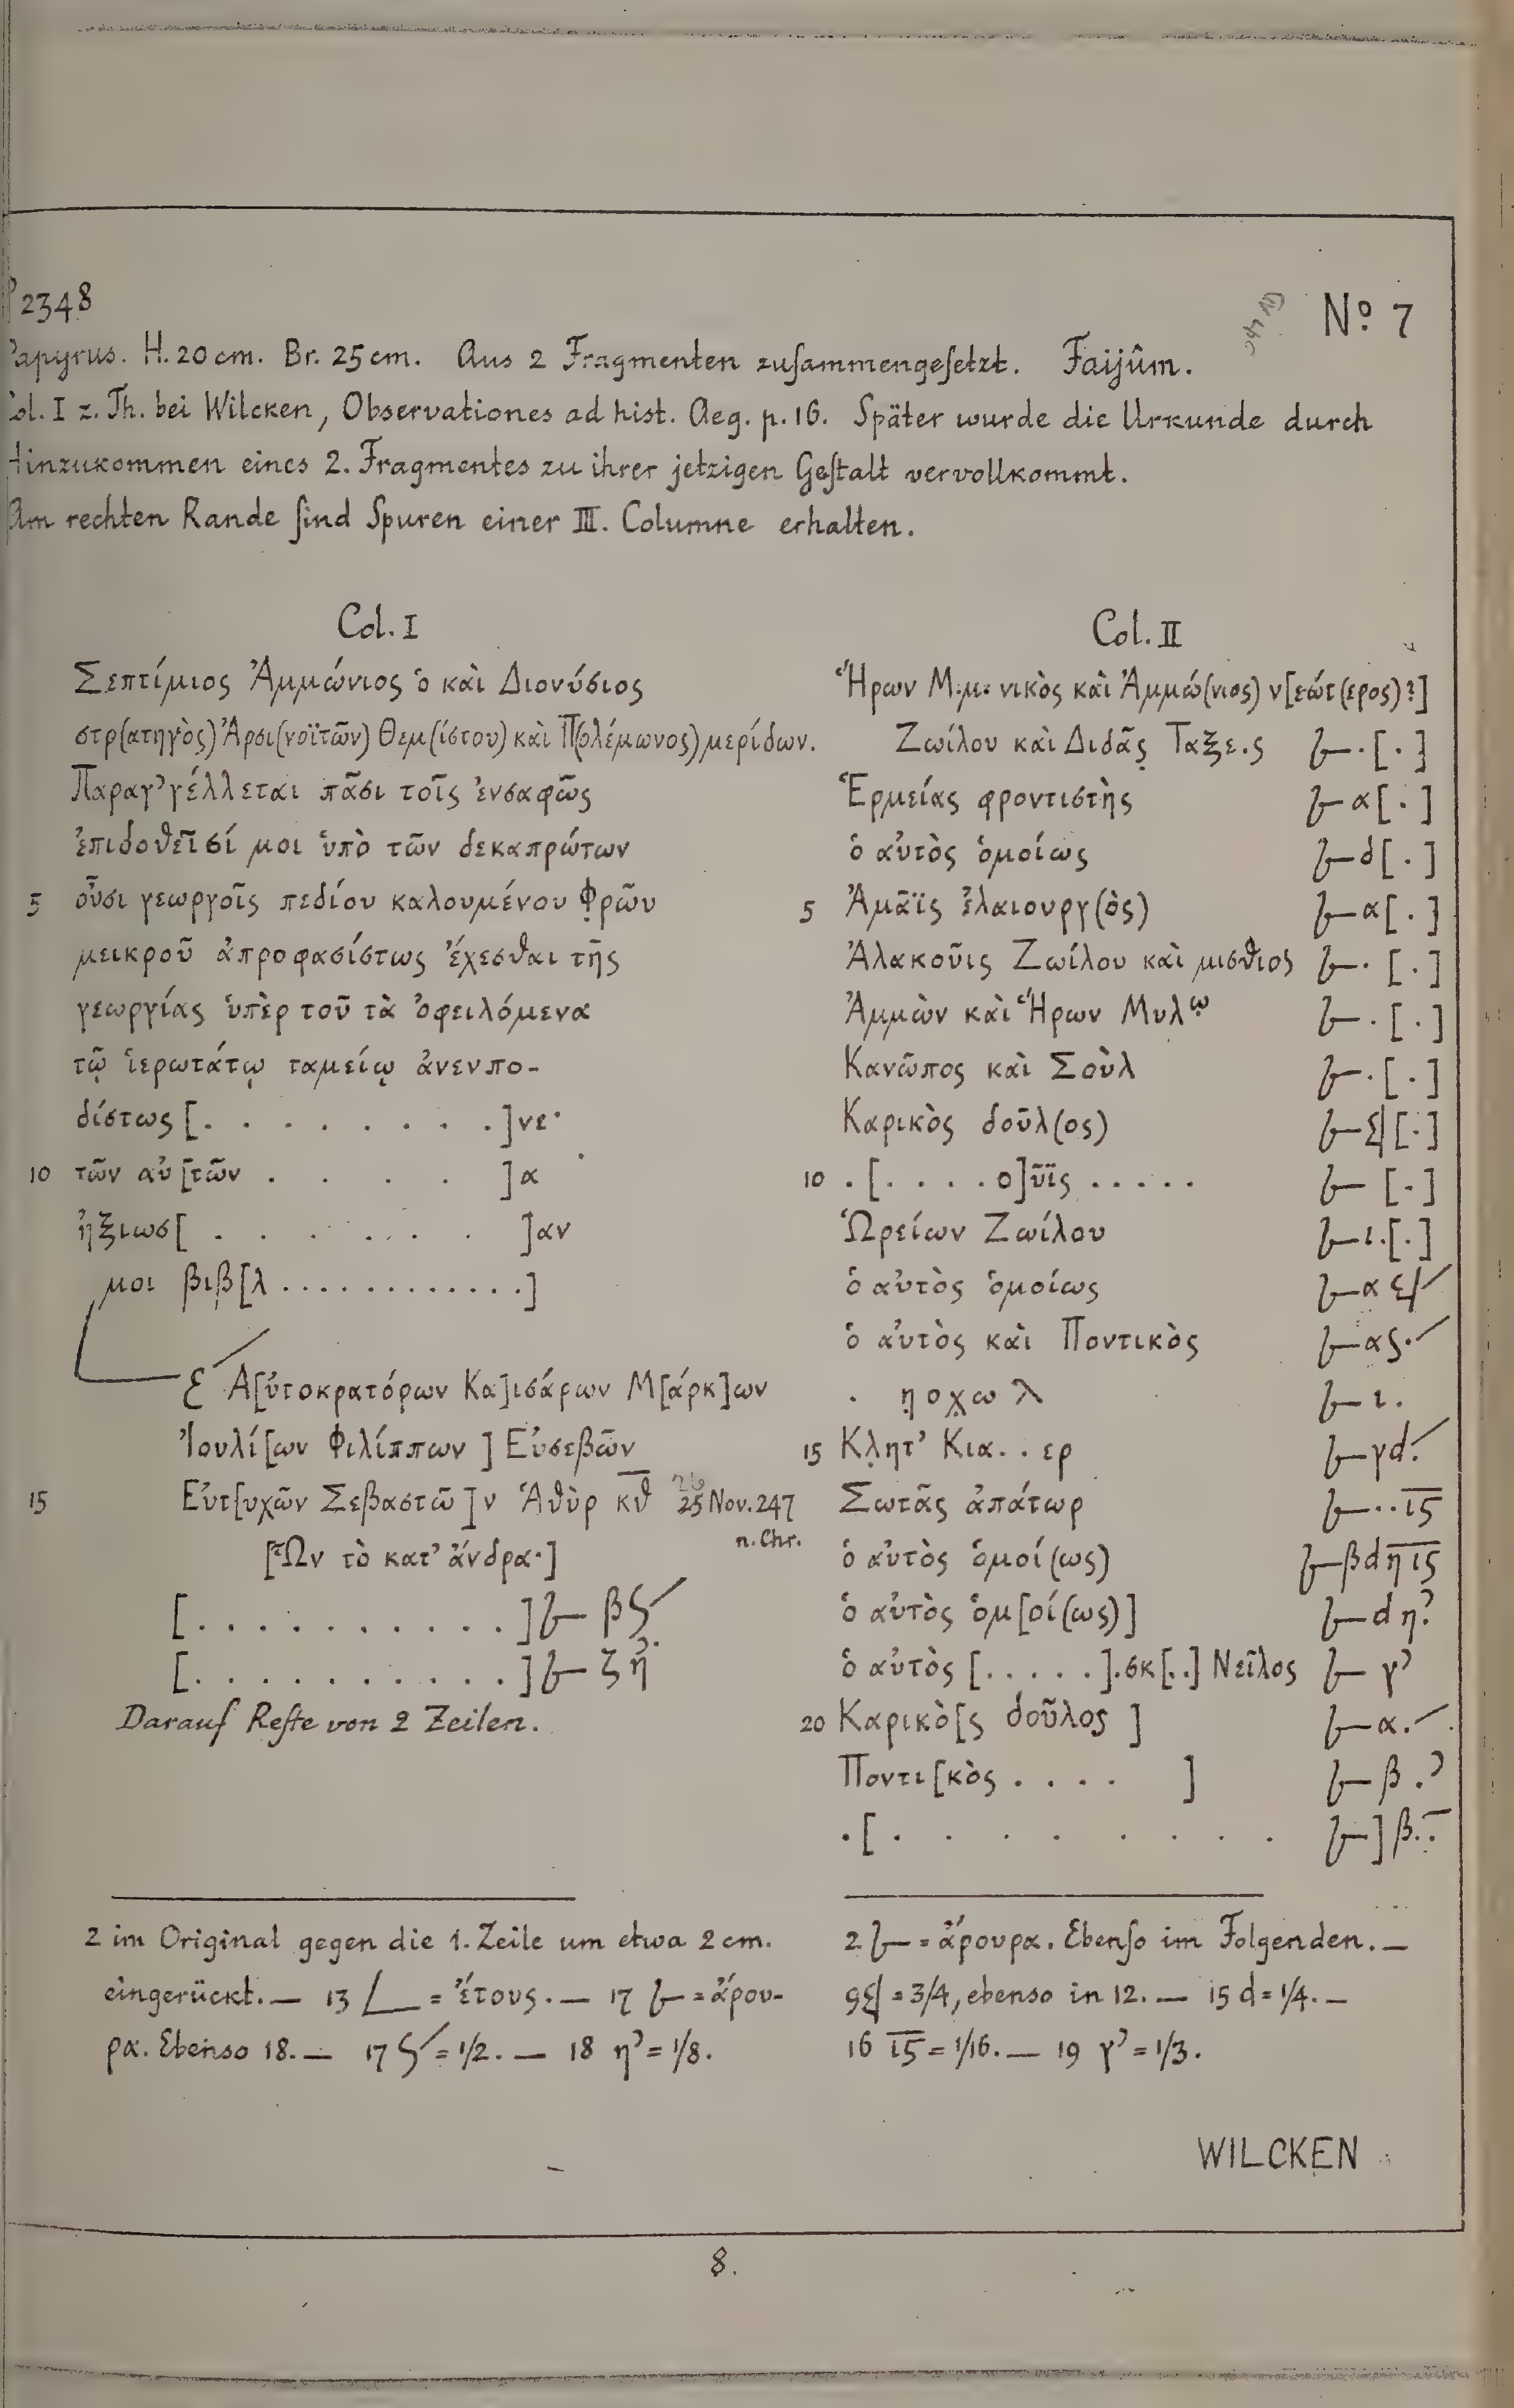 P 2348
Nº 7
Papyrus. H. 20 cm. Br. 25 cm. Aus 2 Fragmenten zuſammengeſetzt. Faijûm.
Col. I z. Th. bei Wilcken, Observationes ad hist. Aeg. p. 16. Später wurde die Urkunde durch
Hinzukommen eines 2. Fragmentes zu ihrer jetzigen Geſtalt vervollkommt.
Am rechten Rande ſind Spuren einer III. Columne erhalten.
Col. I
Σεπτίμιος Ἀμμώνιος ὁ καὶ Διονύσιος
στρ(ατηγὸς) Ἀρσι(νοϊτῶν) Θεμ(ίστου) καὶ Π(ολέμωνος) μερίδων.
Παραγ᾽γέλλεται πᾶσι τοῖς ἐνσαφῶς
ἐπιδοθεῖσί μοι ὑπὸ τῶν δεκαπρώτων
5 οὖσι γεωργοῖς πεδίου καλουμένου Φρῶν
μεικροῦ ἀπροφασίστως ἔχεσθαι τῆς
γεωργίας ὑπὲρ τοῦ τὰ ὀφειλόμενα
τῷ ἱερωτάτῳ ταμείῳ ἀνενπο-
δίστως [. . . . . . . . .]νε·
10 τῶν αὐ[τῶν . . . . ]α
ἠξιωσ[ . . . . . . . ]αν
μοι βιβ[λ . . . . . . . . . . . .]
ε Α[ὐτοκρατόρων Κα]ισάρων Μ[άρκ]ων
Ἰουλί[ων Φιλίππων ] Εὐσεβῶν
15 Εὐτ[υχῶν Σεβαστῶ]ν Ἁθὺρ κθ 25 Nov. 247
n. Chr.
[Ὧν τὸ κατ᾽ ἄνδρα·]
[. . . . . . . . . . .] 𐆌 βϚ
[. . . . . . . . . . .] 𐆌 ζ η᾽
Darauf Reſte von 2 Zeilen.
2 im Original gegen die 1. Zeile um etwa 2 cm.
eingerückt. — 13 L = ἔτους. — 17 𐆌 = ἄρου-
ρα. Ebenso 18. — 17 Ϛ = 1/2. — 18 η᾽ = 1/8.
Col. II
Ἥρων Μ.μ. νικὸς καὶ Ἀμμώ(νιος) ν[εώτ(ερος)?]
Ζωίλου καὶ Διδᾶς Ταξε.ς 𐆌 . [.]
Ἑρμείας φροντιστὴς 𐆌 α[.]
ὁ αὐτὸς ὁμοίως 𐆌 d[.]
5 Ἀμᾶϊς ἐλαιουργ(ὸς) 𐆌 α[.]
Ἀλακοῦις Ζωίλου καὶ μισθιος 𐆌 . [.]
Ἀμμὼν καὶ Ἥρων Μυλω 𐆌 . [.]
Κανῶπος καὶ Σοὺλ 𐆌 . [.]
Καρικὸς δοῦλ(ος) 𐆌 [.]
10 . [. . . . ο]ῦϊς . . . . . 𐆌 [.]
Ὡρείων Ζωίλου 𐆌 ι.[.]
ὁ αὐτὸς ὁμοίως 𐆌 α
ὁ αὐτὸς καὶ Ποντικὸς 𐆌 ας.
. ηοχωλ 𐆌 ι.
15 Κλητ᾽ Κια. . ερ 𐆌 γd
Σωτᾶς ἀπάτωρ 𐆌 . . ις
ὁ αὐτὸς ὁμοί(ως) 𐆌 βd η ις
ὁ αὐτὸς ὁμ[οί(ως)] 𐆌 d η᾽
ὁ αὐτὸς [. . . . .].σκ[. .] Νεῖλος 𐆌 γ᾽
20 Καρικὸ[ς δοῦλος ] 𐆌 α.
Ποντι[κὸς . . . . ] 𐆌 β .᾽
. [ . . . . . . . . 𐆌 ] β. .
2 𐆌 = ἄρουρα. Ebenſo im Folgenden. —
9 = 3/4, ebenso in 12. — 15 d = 1/4. —
16 ις = 1/16. — 19 γ᾽ = 1/3.
WILCKEN
8.